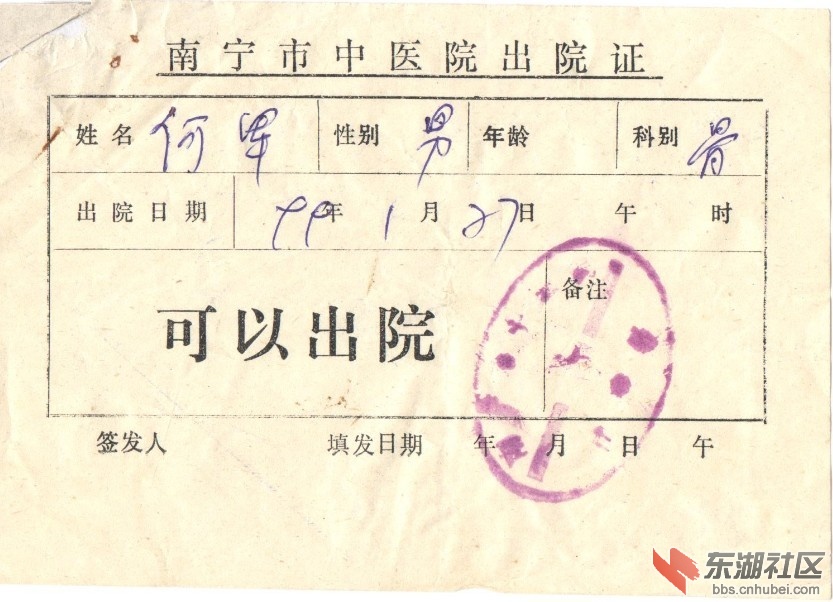 南宁市中医院出院证
姓名 何军 性别 男 年龄 科别 骨
出院日期 99年 1月 27日 午 时
可以出院 备注
签发人 填发日期 年 月 日 午
东湖社区
bbs.cnhubei.com